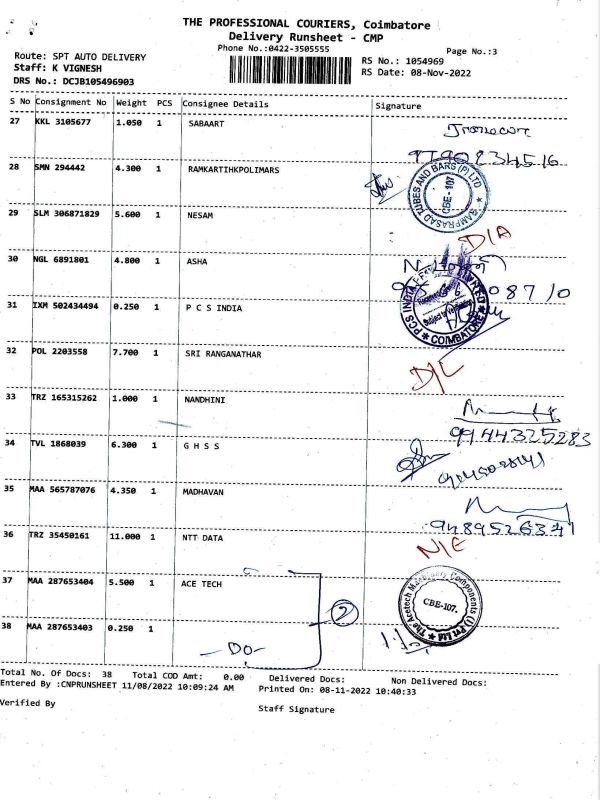 THE PROFESSIONAL COURIERS, Coimbatore
Delivery Runsheet - CMP
Phone No.:0422-3505555
Page No.:3
Route: SPT AUTO DELIVERY
Staff: K VIGNESH
DRS No.: DCJB105496903
RS No.: 1054969
RS Date: 08-Nov-2022
S No Consignment No Weight PCS Consignee Details Signature
27 KKL 3105677 1.050 1 SABAART
28 SMN 294442 4.300 1 RAMKARTIHKPOLIMARS
RAMPRASAD TUBES AND BARS (P) LTD
CBE-107
29 SLM 306871829 5.600 1 NESAM
D/A
30 NGL 6891801 4.800 1 ASHA
31 IXM 502434494 0.250 1 P C S INDIA
COIMBATORE
32 POL 2203558 7.700 1 SRI RANGANATHAR
D/L
33 TRZ 165315262 1.000 1 NANDHINI
9944325283
34 TVL 1868039 6.300 1 G H S S
35 MAA 565787076 4.350 1 MADHAVAN
9489526341
36 TRZ 35450161 11.000 1 NTT DATA
N/E
37 MAA 287653404 5.500 1 ACE TECH
2
CBE-107.
38 MAA 287653403 0.250 1
- DO -
Total No. Of Docs: 38 Total COD Amt: 0.00 Delivered Docs: Non Delivered Docs:
Entered By :CNPRUNSHEET 11/08/2022 10:09:24 AM Printed On: 08-11-2022 10:40:33
Verified By
Staff Signature